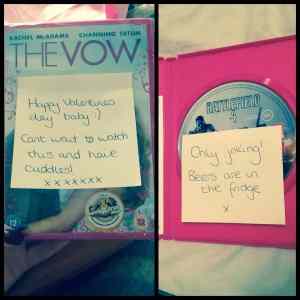 RACHEL McADAMS CHANNING TATUM
THE VOW
Happy Valentines
day baby :)
Cant wait to watch
this and have
cuddles!
x x x x x x x
12
BATTLEFIELD
4
Only joking!
Beers are in
the fridge
x